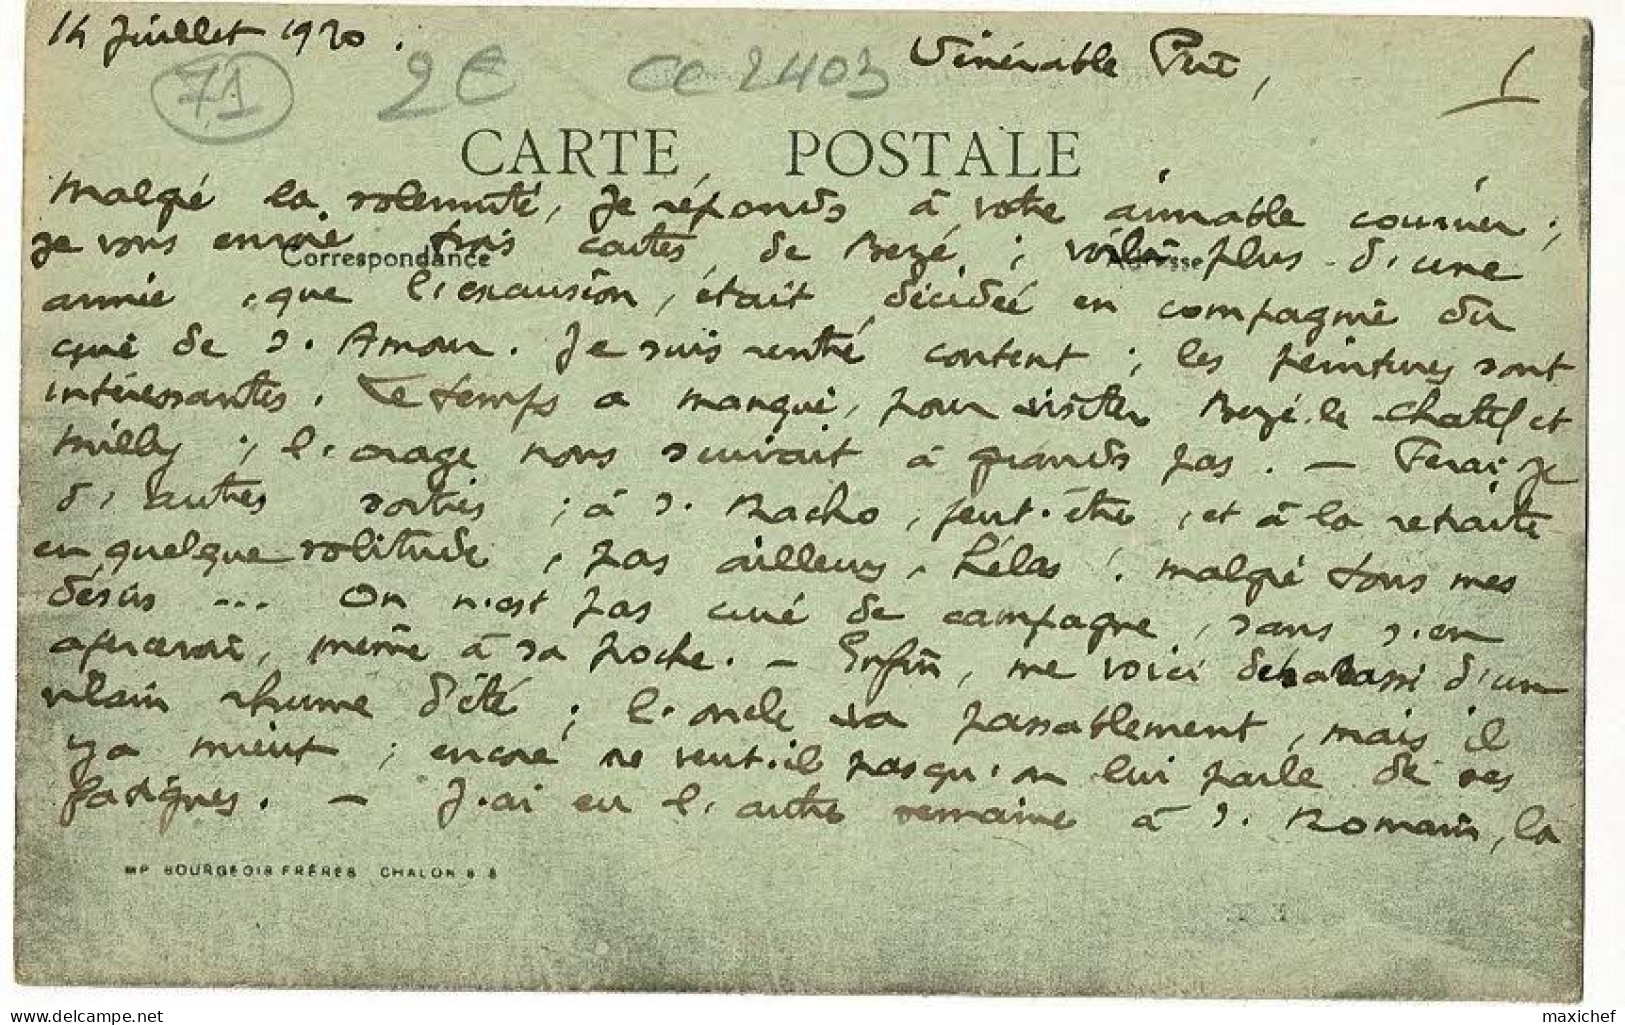 14 Juillet 1920.
Vénérable
1
71
2€
CC 2403
CARTE POSTALE
Malgré la solennité, je réponds à votre aimable courrier ;
Correspondance
je vous envoie trois cartes de Berzé ; voilà plus d'une
année, que l'excursion, était décidée en compagnie du
curé de S. Amour. Je suis rentré content ; les peintures sont
intéressantes. Le temps a manqué, pour visiter Berzé-le-Chatel et
Milly ; l'orage nous suivait à grands pas. — Ferai-je
d'autres sorties ; à S. Racho, peut-être, et à la retraite
en quelque solitude, pas ailleurs, hélas ! malgré tous mes
désirs ... On n'est pas curé de campagne, sans s'en
apercevoir, même à sa poche. — Enfin, me voici débarassé d'un
vilain rhume d'été ; l'oncle va passablement, mais il
y a mieux ; encore ne veut-il pas qu'on lui parle de ses
fatigues. — J'ai eu l'autre semaine à S. Romain, la
IMP BOURGEOIS FRÈRES CHALON S S
delcampe.net
maxichef